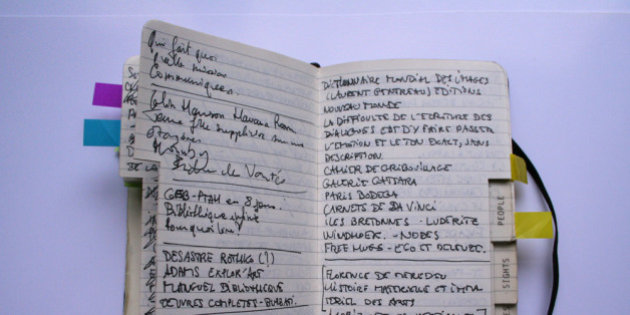 Qui fait quoi
quelle mission
Communiques.
Colin Manson Havana Room
Jeune fille suppliciée sur une
étagère
en 8 jours.
Bibliothèque
Pourquoi
DESASTRE ROTHKO (!)
ADAMS EXPLOR'ART
MANGUEL BIBLIOTHEQUE
OEUVRES COMPLETES - BUZZATI.
DICTIONNAIRE MONDIAL DES IMAGES
(LAURENT GERVEREAU) EDITIONS
NOUVEAU MONDE
LA DIFFICULTE DE L'ECRITURE DES
DIALOGUES EST D'Y FAIRE PASSER
L'EMOTION ET LE TON EXACT, SANS
DESCRIPTION.
CAHIER DE GRIBOUILLAGE
GALERIE
PARIS BODEGA
CARNETS DE DA VINCI
ILES BRETONNES - LUDERITZ
WINDHOEK. -
FREE MUGS - EGO ET
FLORENCE DE MEREDIEU
HISTOIRE MATERIELLE ET IMMA
TERIEL DES ARTS
PEOPLE
SIGHTS